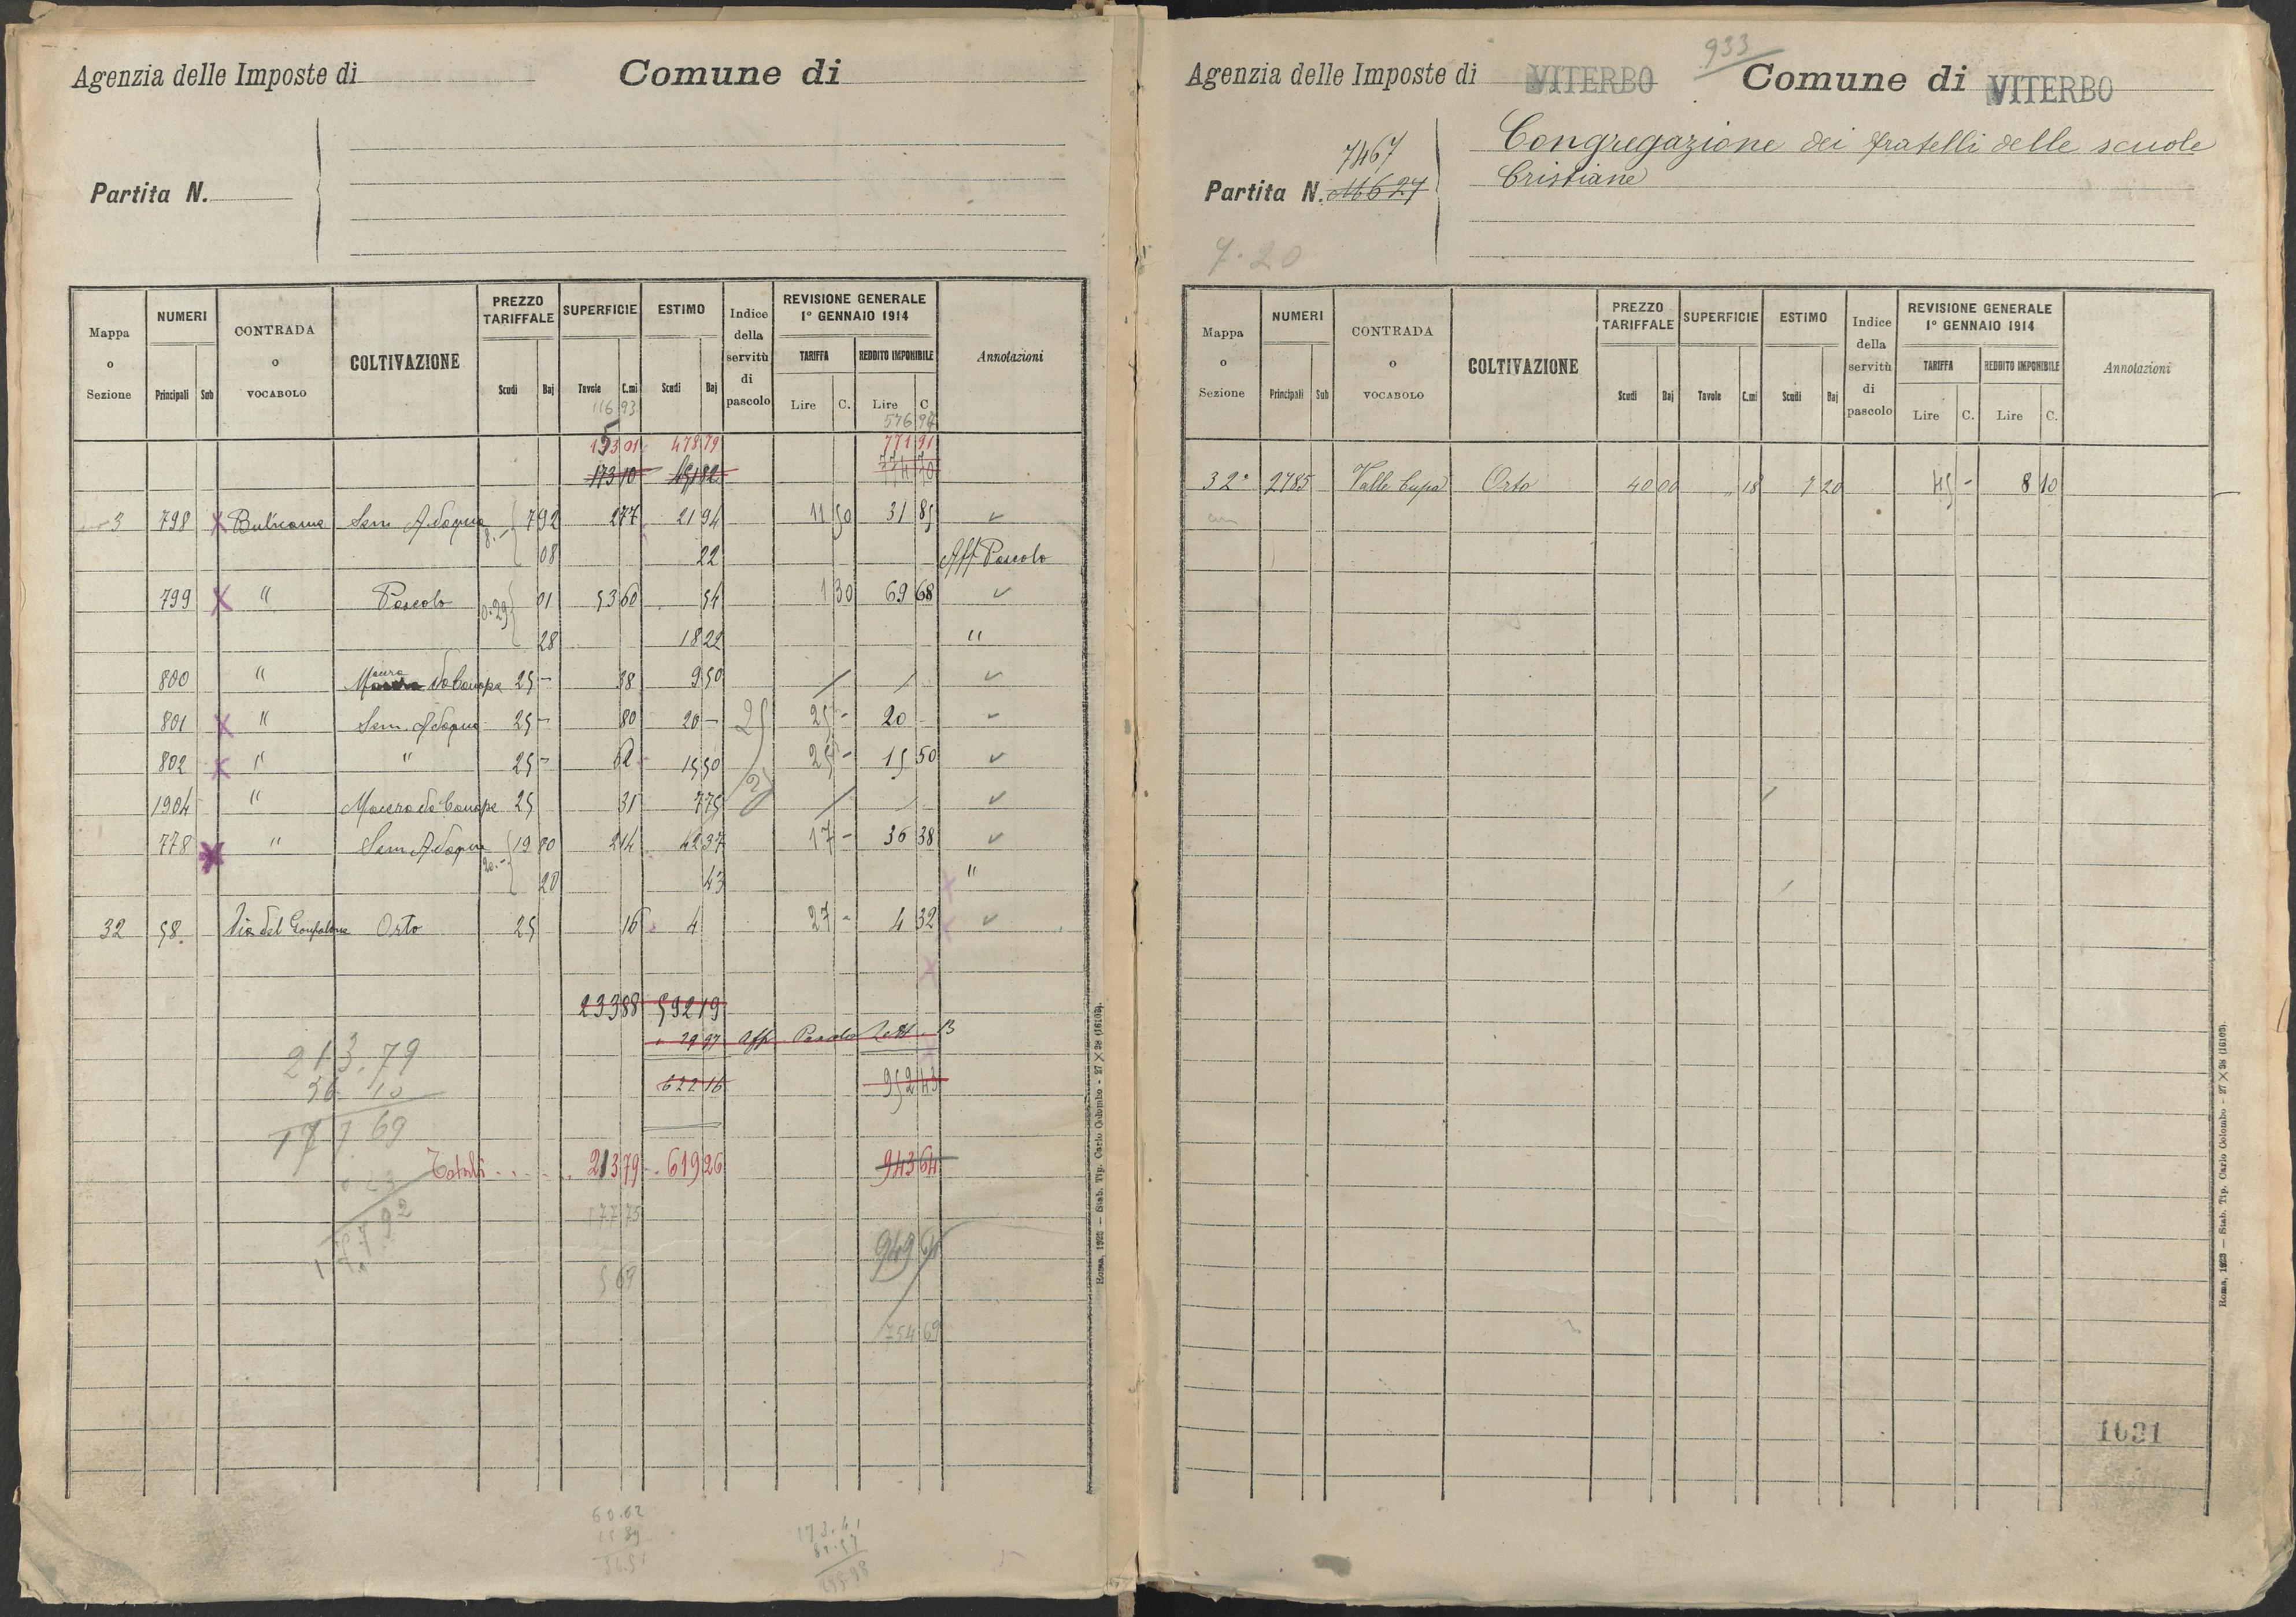 Agenzia delle Imposte di Comune di
Partita N.
Mappa o Sezione NUMERI Principali Sub CONTRADA o VOCABOLO COLTIVAZIONE PREZZO TARIFFALE Scudi Baj SUPERFICIE Tavole C.mi ESTIMO Scudi Baj Indice della servitù di pascolo REVISIONE GENERALE 1° GENNAIO 1914 TARIFFA Lire C. REDDITO IMPONIBILE Lire C Annotazioni
116 93 576 94
153 01 478 79 771 91
173 10
3 798 Bulicame Sem. Adacqua 7 92 2 77 21 94 11 50 31 85
08 22 Aff. Pascolo
799 " Pascolo 0.29 01 53 60 54 1 30 69 68
28 18 22 "
800 " Macero da Canapa 25 - 38 9 50 / /
801 " Sem. Adacqua 25 - 80 20 - 25 25 - 20 -
802 " " 25 - 62 15 50 25 - 15 50
1904 " Macero da Canape 25 31 7 75 / /
778 " Sem Adacqua 20.- 19 80 2 14 42 37 17 - 36 38
20 43 "
32 58. Via del Gonfalone Orto 25 16 4 27 - 4 32
233 88 592 19
29 97 Aff. Pascolo Lett. B
622 16 952 43
213.79
36 10
177 69
Totali 213 79 619 26 943 64
177 75
949
5 69
754 69
60.62
173.41
Roma, 1923 — Stab. Tip. Carlo Colombo - 27 X 38 (16103).
933
Agenzia delle Imposte di VITERBO Comune di VITERBO
Congregazione dei fratelli delle scuole
7467
Partita N. 11627 Cristiane
7.20
Mappa o Sezione NUMERI Principali Sub CONTRADA o VOCABOLO COLTIVAZIONE PREZZO TARIFFALE Scudi Baj SUPERFICIE Tavole C.mi ESTIMO Scudi Baj Indice della servitù di pascolo REVISIONE GENERALE 1° GENNAIO 1914 TARIFFA Lire C. REDDITO IMPONIBILE Lire C. Annotazioni
32ª 2785 Valle Cupa Orto 40 00 " 18 7 20 45 - 8 10
1031
Roma, 1923 — Stab. Tip. Carlo Colombo - 27 X 38 (16103).